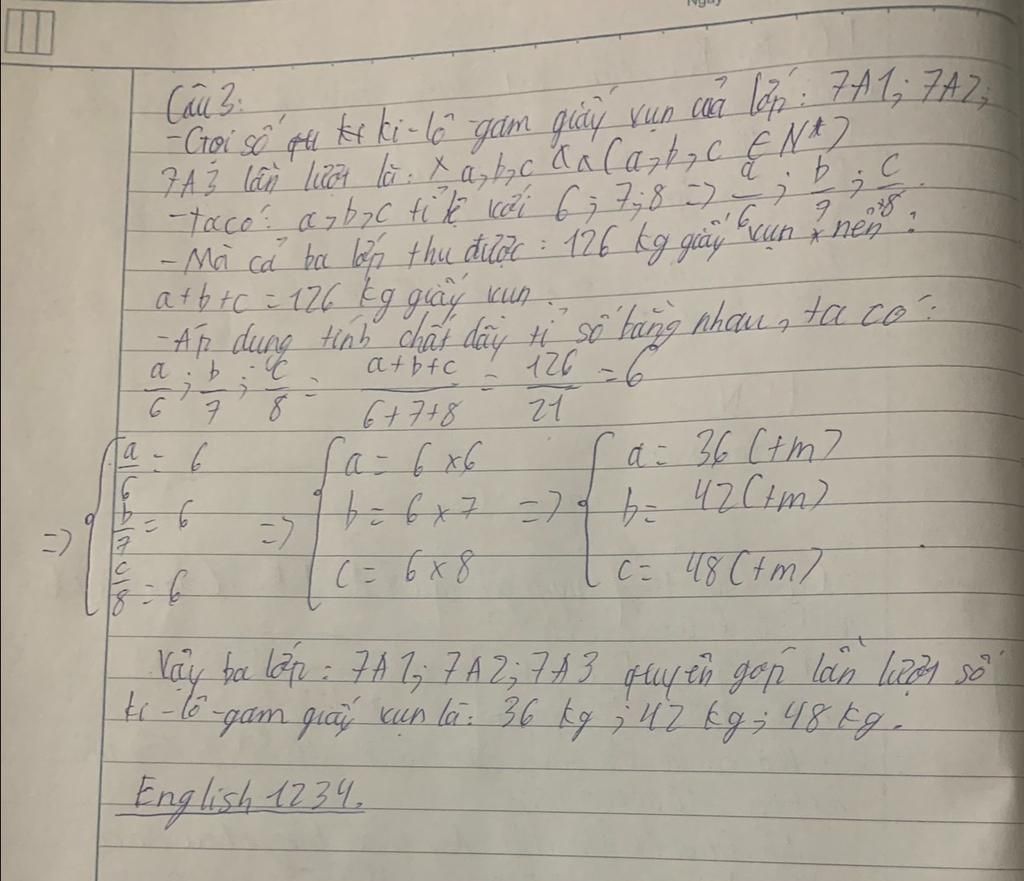 Ngày
Câu 3:
-Gọi số ki-lô-gam giấy vụn của lớp: 7A1; 7A2;
7A3 lần lượt là: a,b,c (a,b,c ∈ N*)
-ta có: a,b,c tỉ lệ với 6;7;8 => a/6; b/7; c/8.
-Mà cả ba lớp thu được: 126 kg giấy vụn nên:
a+b+c=126 kg giấy vụn.
-Áp dụng tính chất dãy tỉ số bằng nhau, ta có:
a/6; b/7; c/8 = (a+b+c)/(6+7+8) = 126/21 = 6
=> { a/6 = 6 => { a = 6×6 => { a = 36 (tm)
b/7 = 6 b = 6×7 b = 42 (tm)
c/8 = 6 c = 6×8 c = 48 (tm)
Vậy ba lớp: 7A1; 7A2; 7A3 quyên góp lần lượt số
ki-lô-gam giấy vụn là: 36 kg; 42 kg; 48 kg.
English 1234.